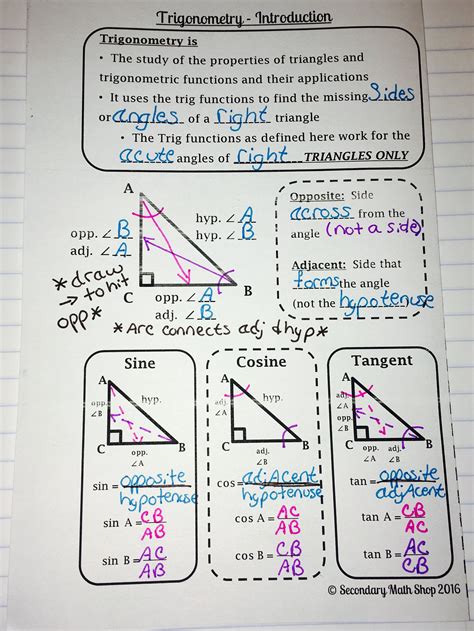 Trigonometry - Introduction
Trigonometry is
• The study of the properties of triangles and
trigonometric functions and their applications
• It uses the trig functions to find the missing sides
or angles of a right triangle
• The Trig functions as defined here work for the
acute angles of right TRIANGLES ONLY
A
opp. ∠ B
adj. ∠ A
hyp. ∠ A
hyp. ∠ B
C
opp. ∠ A
adj. ∠ B
B
*draw
→ to hit
opp*
*Arc connects adj & hyp*
Opposite: Side
across from the
angle (not a side)
Adjacent: Side that
forms the angle
(not the hypotenuse
Sine
A
opp.
∠B
hyp.
C
opp.
∠A
B
sin = opposite
hypotenuse
sin A = CB
AB
sin B = AC
AB
Cosine
A
adj.
∠A
hyp.
C
adj.
∠B
B
cos = adjAcent
hypotenuse
cos A = AC
AB
cos B = CB
AB
Tangent
A
adj.
∠A
opp.
∠B
C
opp.
∠A
adj.
∠B
B
tan = opposite
adjAcent
tan A = CB
AC
tan B = AC
CB
© Secondary Math Shop 2016